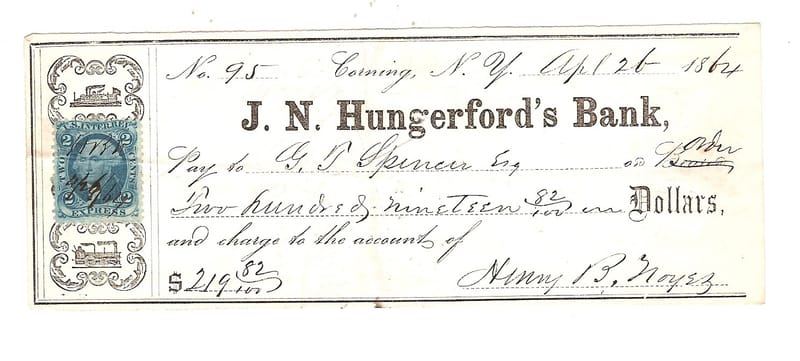 No. 95 Corning, N. Y. Apl 26 1864
J. N. Hungerford's Bank,
Pay to G. T Spencer Esq or order
Two hundred, nineteen 82/100 Dollars,
and charge to the account of
$ 219 82/100 Henry B. Noyes
U.S. INTER REV
2 2
TWO CENTS
2 2
EXPRESS